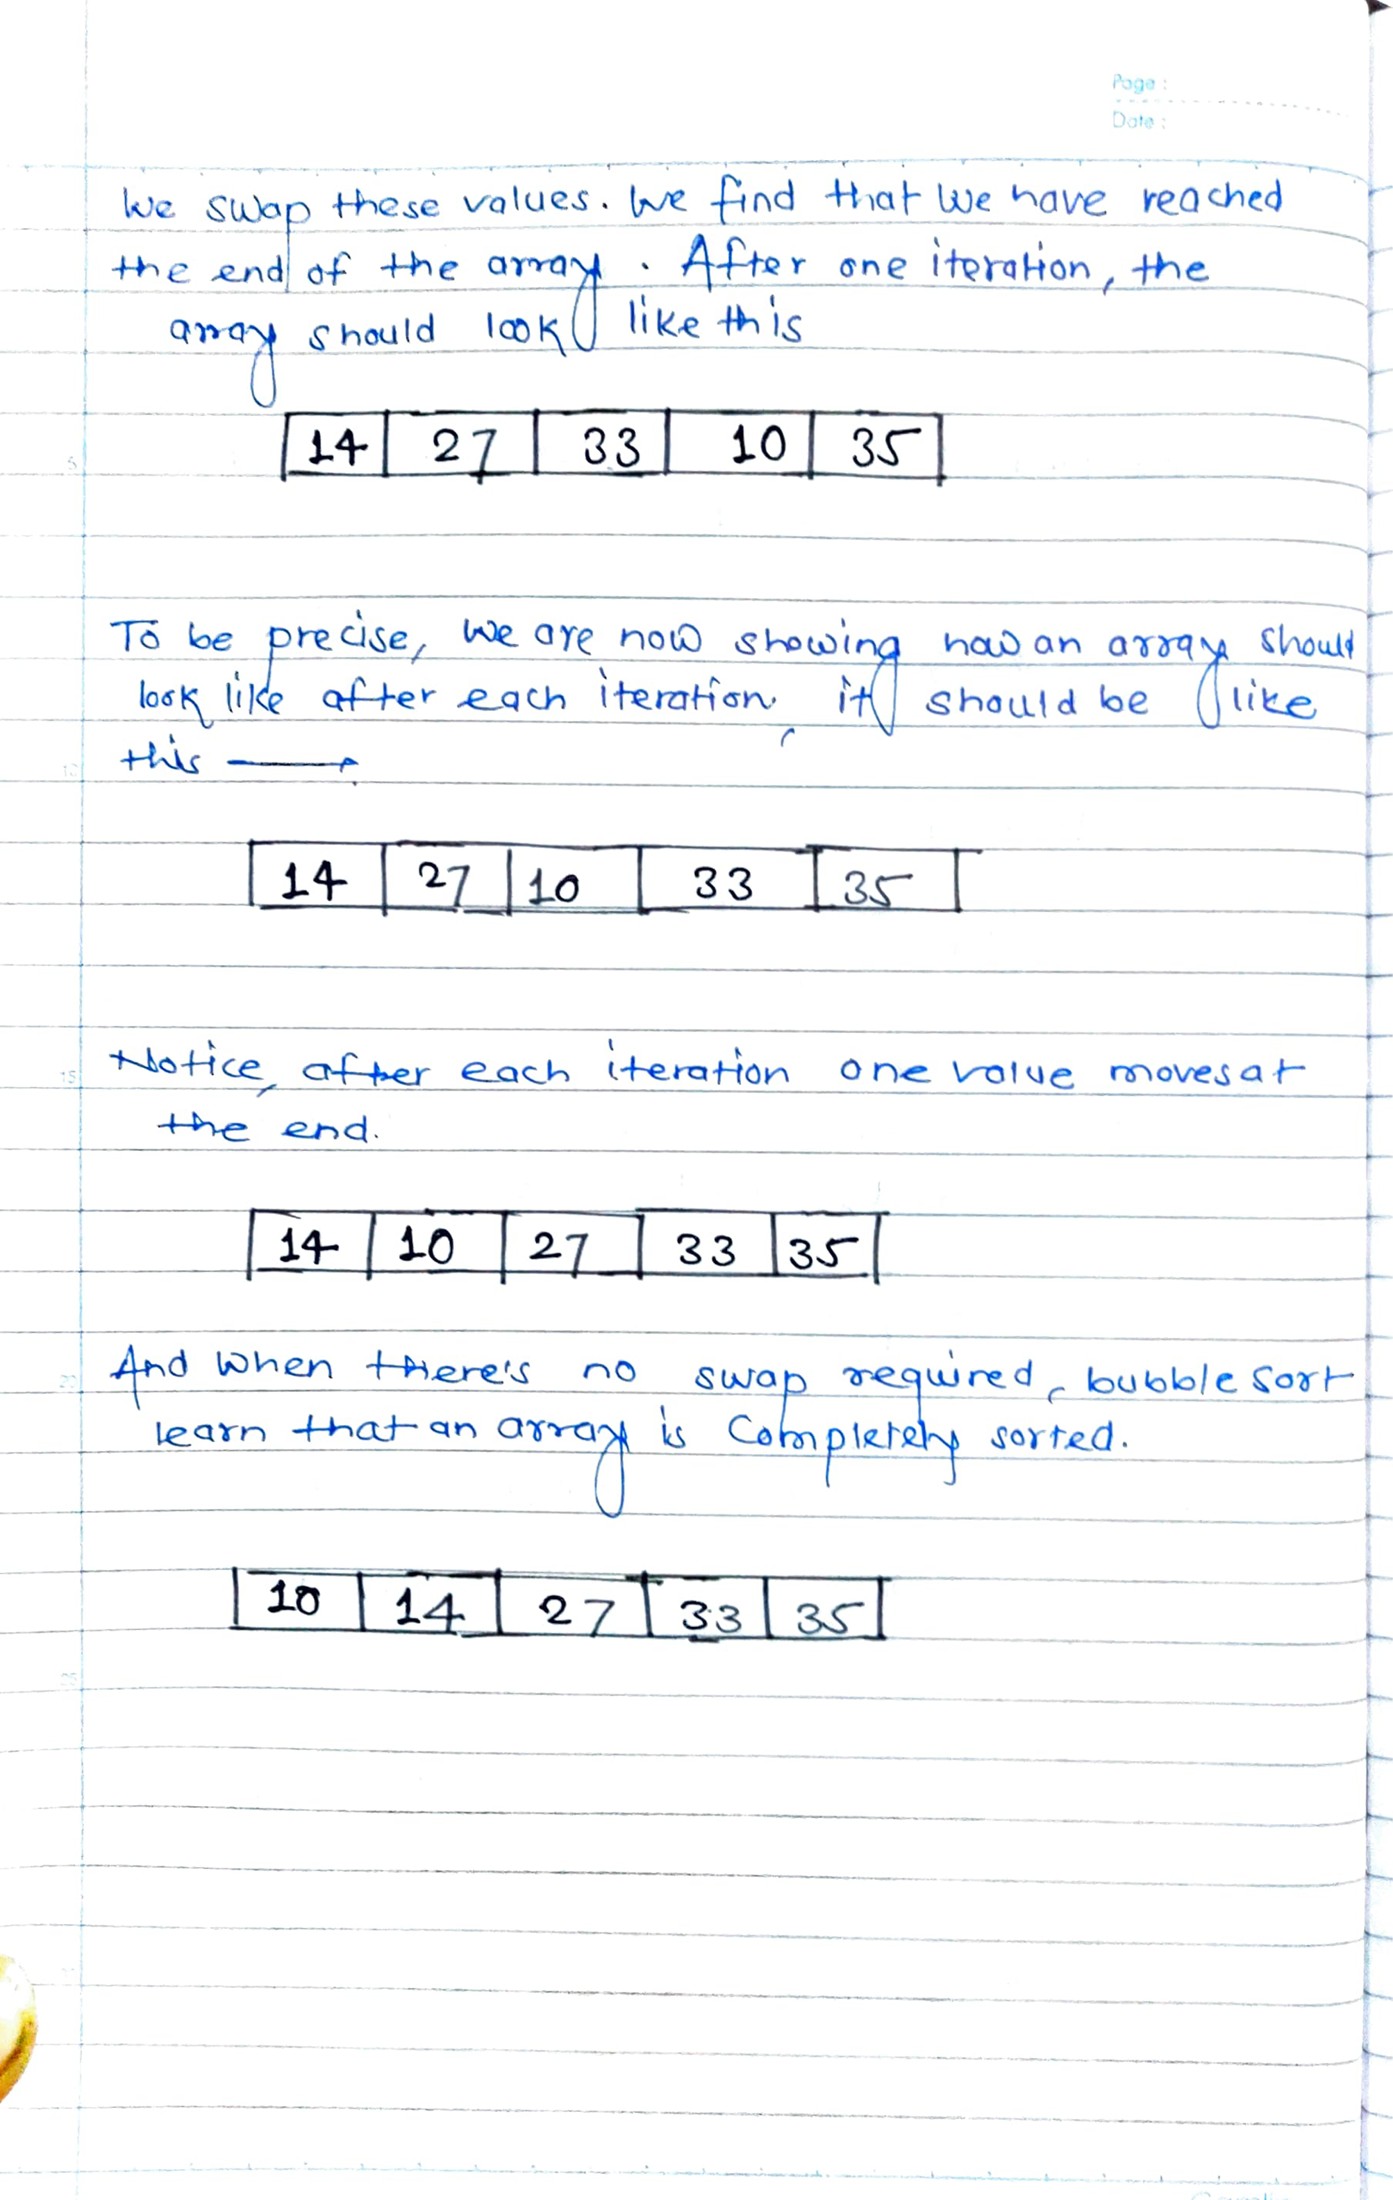 Page :
Date :
We swap these values. We find that we have reached
the end of the array. After one iteration, the
array should look like this
14 27 33 10 35
To be precise, we are now showing how an array should
look like after each iteration, it should be like
this →
14 27 10 33 35
Notice, after each iteration one value moves at
the end.
14 10 27 33 35
And when there's no swap required, bubble sort
learn that an array is Completely sorted.
10 14 27 33 35